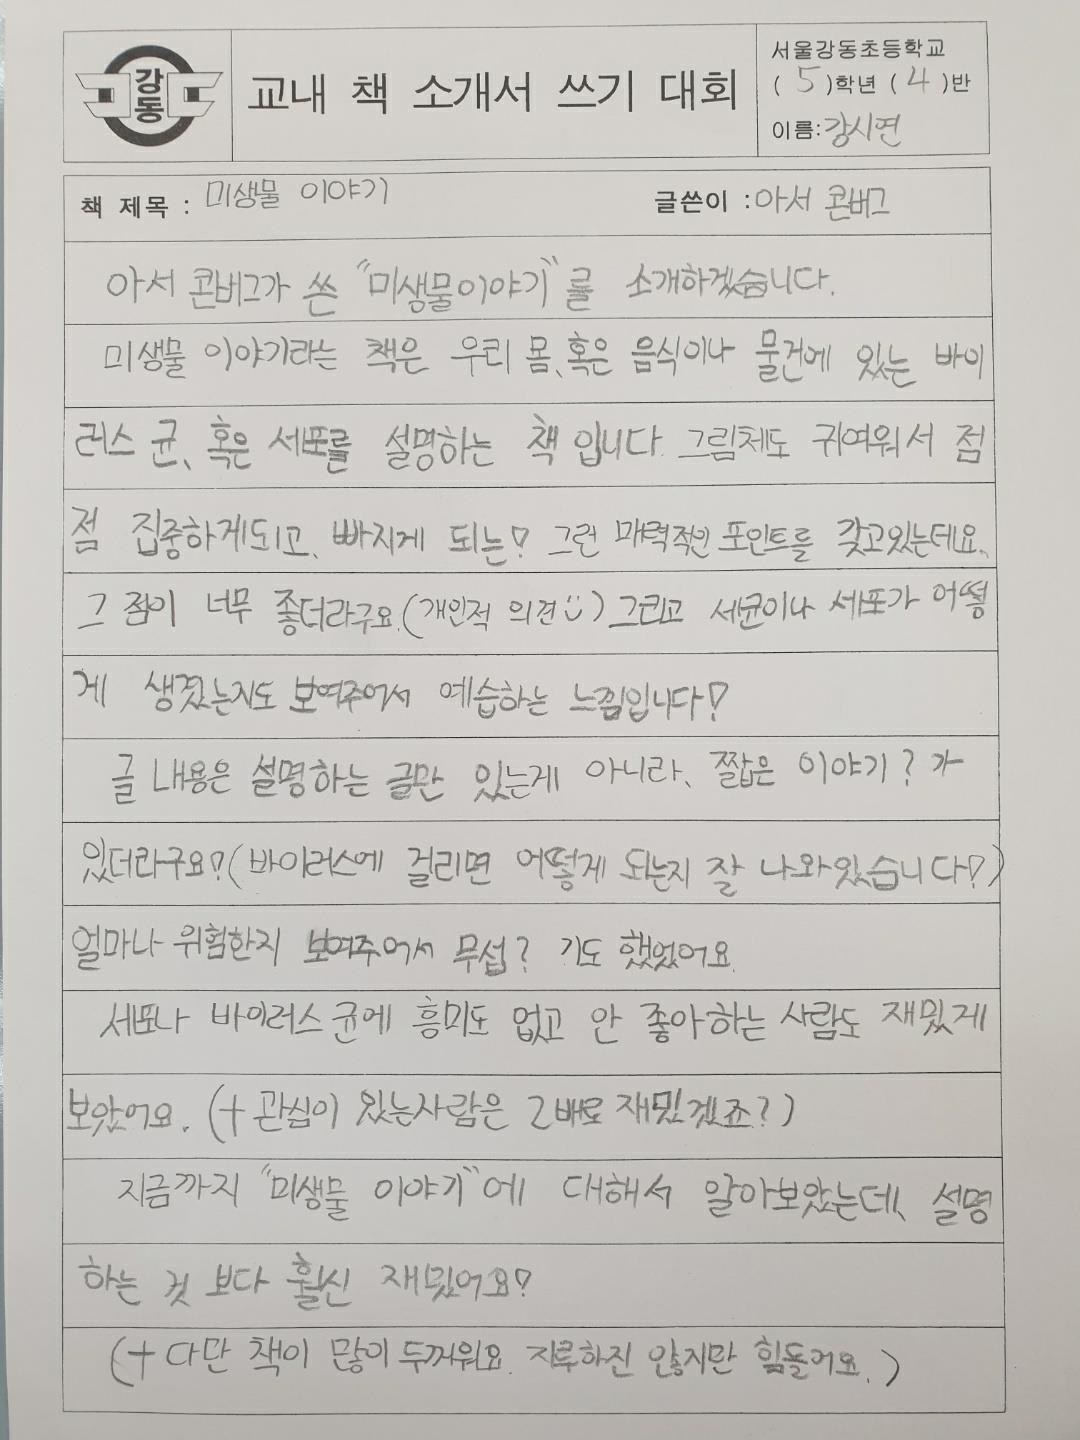 강동
교내 책 소개서 쓰기 대회
서울강동초등학교
( 5 )학년 ( 4 )반
이름:강시연
책 제목 : 미생물 이야기 글쓴이 :아서 콘버그
아서 콘버그가 쓴 "미생물이야기"를 소개하겠습니다.
미생물 이야기라는 책은 우리 몸, 혹은 음식이나 물건에 있는 바이
러스 균, 혹은 세포를 설명하는 책 입니다. 그림체도 귀여워서 점
점 집중하게되고, 빠지게 되는! 그런 매력적인 포인트를 갖고있는데요,
그 점이 너무 좋더라구요.(개인적 의견 ☺) 그리고 세균이나 세포가 어떻
게 생겼는지도 보여주어서 예습하는 느낌입니다!
글 내용은 설명하는 글만 있는게 아니라, 짧은 이야기? 가
있더라구요!(바이러스에 걸리면 어떻게 되는지 잘 나와있습니다!)
얼마나 위험한지 보여주어서 무섭? 기도 했었어요.
세포나 바이러스 균에 흥미도 없고 안 좋아하는 사람도 재밌게
보았어요. (+ 관심이 있는사람은 2배로 재밌겠죠?)
지금까지 "미생물 이야기"에 대해서 알아보았는데, 설명
하는 것 보다 훨신 재밌어요!
(+ 다만 책이 많이 두꺼워요. 지루하진 않지만 힘들어요.)